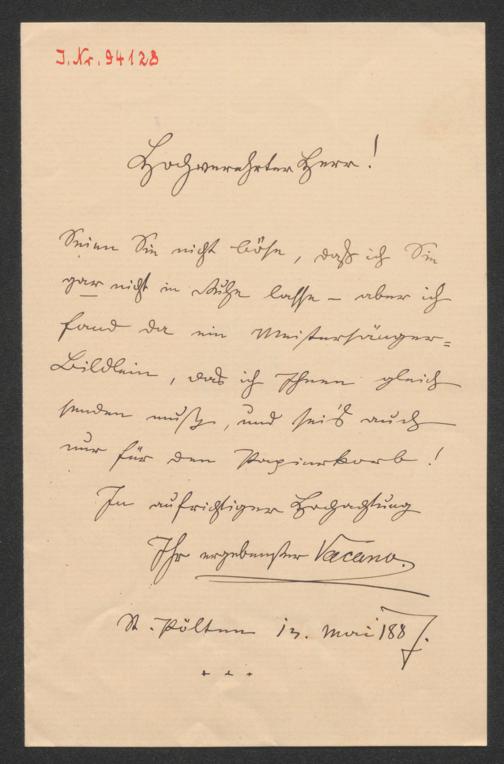 J. Nr. 94123
Hochverehrter Herr!
Seien Sie nicht böse, daß ich Sie
gar nicht in Ruhe lasse – aber ich
fand da ein Meistersänger=
Bildlein, das ich Ihnen gleich
senden muß, und sei's auch
nur für den Papierkorb!
In aufrichtiger Hochachtung
Ihr ergebenster Vacano.
St. Pölten 13. Mai 1887.